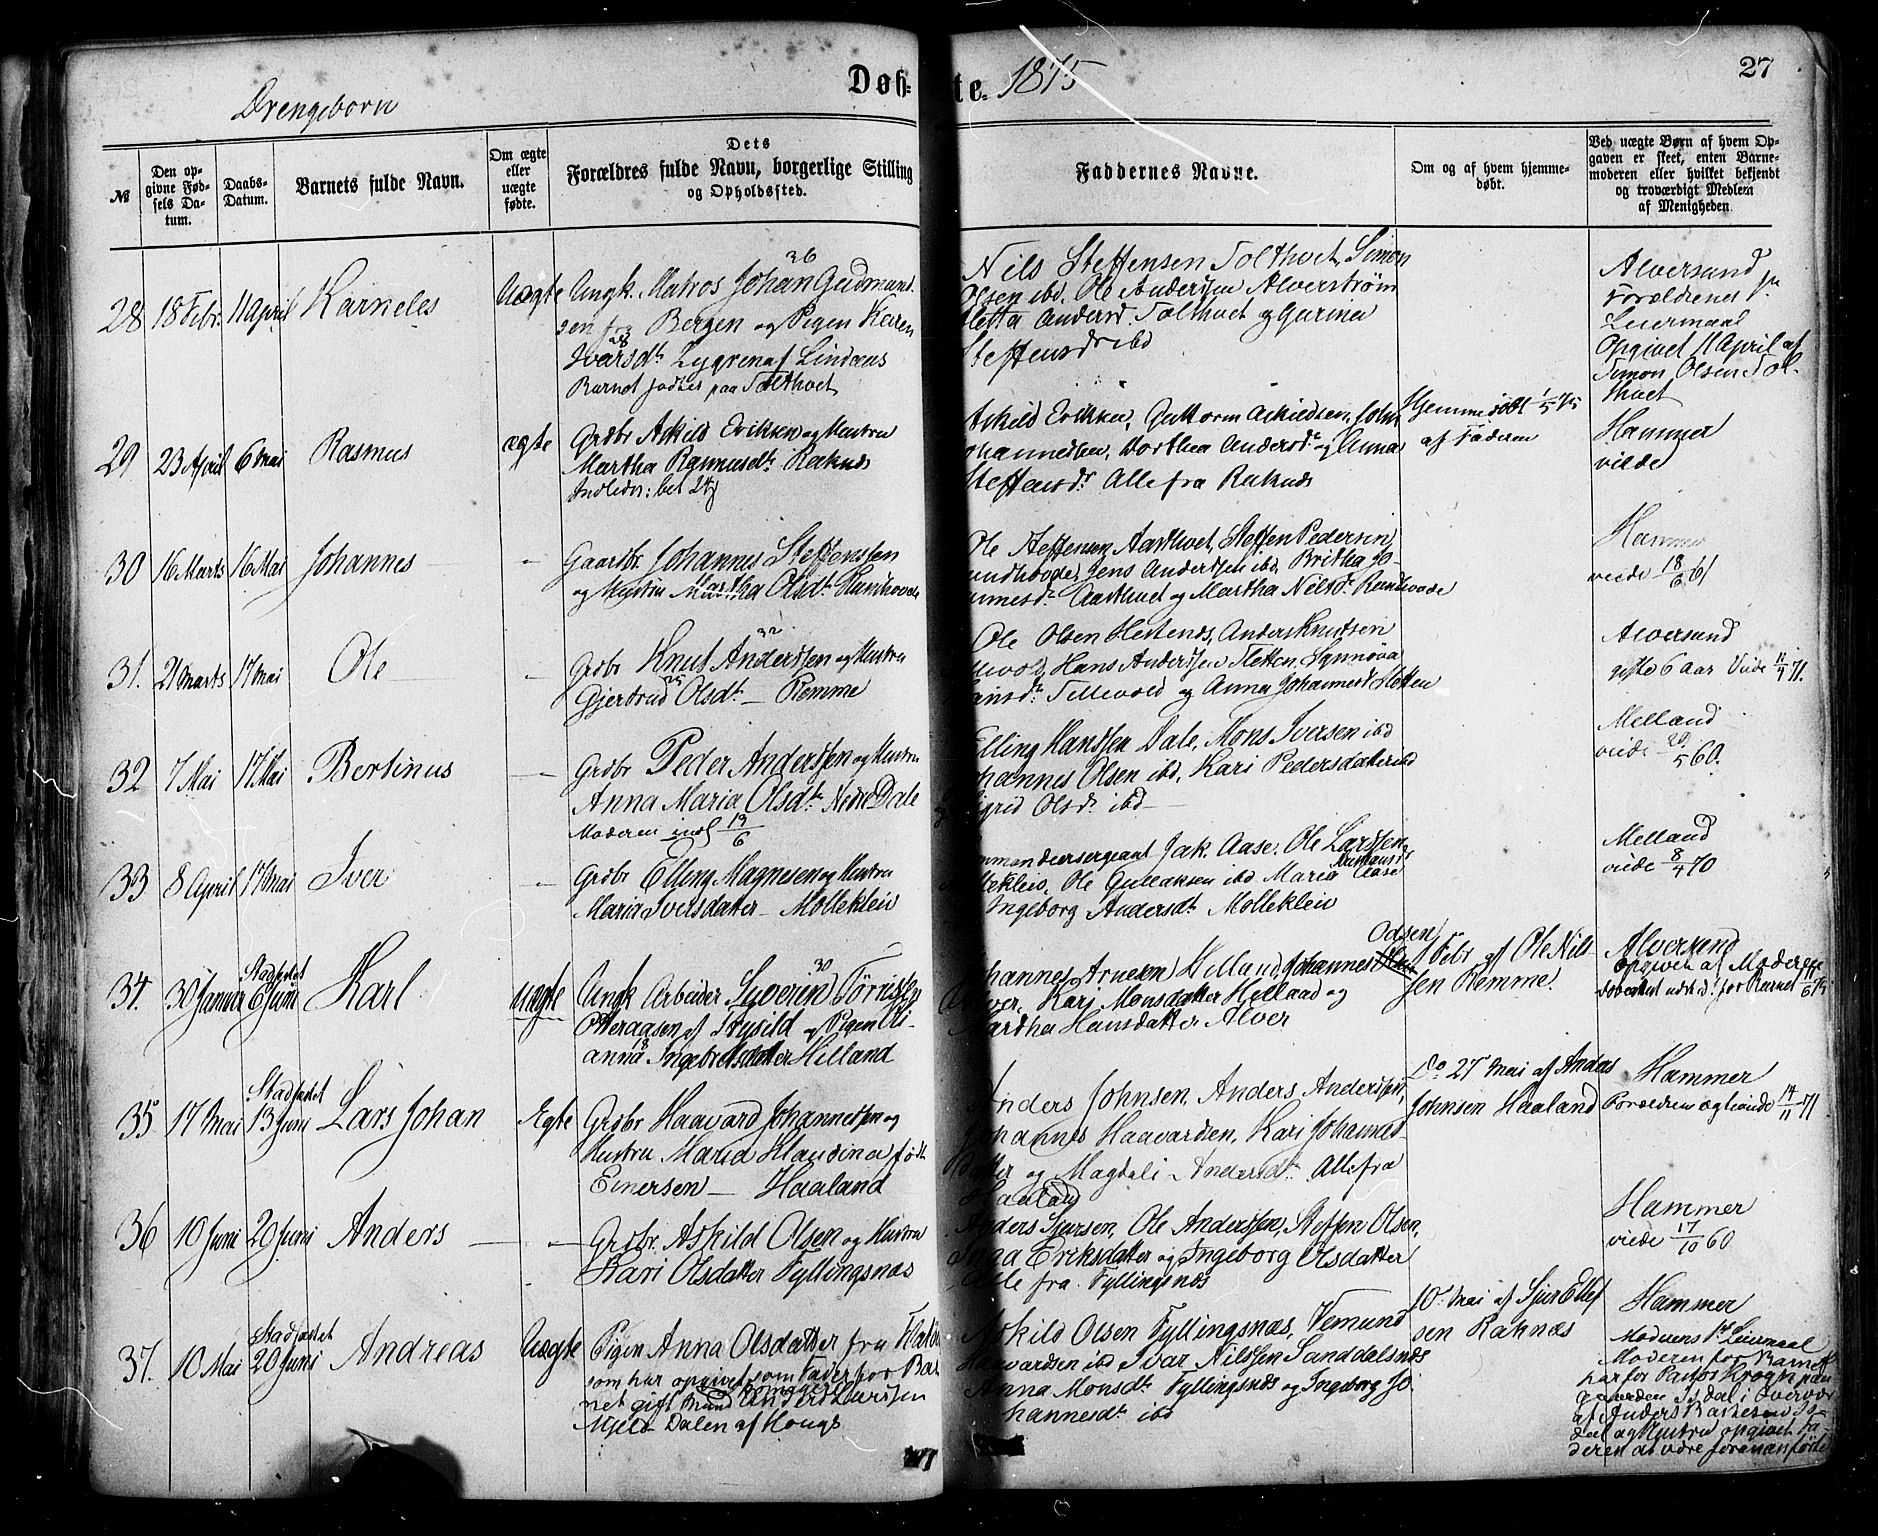 Drengeborn
Døb-te. 1875
27
№
Den opgivne Fødsels Datum.
Daabs-Datum.
Barnets fulde Navn.
Om ægte eller uægte fødte.
Dets Forældres fulde Navn, borgerlige Stilling og Opholdssted.
Faddernes Navne.
Om og af hvem hjemmedøbt.
Ved uægte Børn af hvem Opgaven er skeet, enten Barnemoderen eller hvilket bekjendt og troværdigt Medlem af Menigheden.
28 18 Febr. 11 April Karneles Uægte Ungk. Matros Johan Gudmund-
36
sen fra Bergen og Pigen Karen
28
Ivarsdtr Lygren af Lindaas
Barnet fødtes paa Tolthvet
Nils Steffensen Tolthvet, Simon
Olsen ibd, Ole Andersen Alverstrøm
Anders. Tolthvet og Gurina
Steffensdr ibd
Alversund
Forældrenes
Leiermaal
Opgivet 11 April af
Simon Olsen Tol-
thvet
29 23 April 6 Mai Rasmus ægte Grdbr Askild Eriksen og Hustru
Martha Rasmusdtr Raknæs
Askild Eriksen, Guttorm Askildsen, John
Johannessen, Dorthea Andersdr og Anna
Steffensdr Alle fra Raknæs
Hjemmedøbt 1/5 75
af Faderen
Hammer
viede
30 16 Marts 16 Mai Johannes - Gaardbr. Johannes Steffensen
og Hustru Martha Olsdtr
Ole Steffensen Aasthvet, Steffen Pedersen
Jens Andersen ibd, Britha Jo-
annesdtr Aasthvet og Martha Nilsdr
Hammer
viede 18/6 61
31. 21 Marts 17 Mai Ole - Grdbr Knut Andersen og Hustru
32
Gjertrud Olsdtr - Remme
25
Ole Olsen Hestenes, Anders Knutsen
Hans Andersen Fletten, Synnøva
Hansdtr Tellevold og Anna Johannesd Fletten
Alversund
gifte 6 Aar Viede 11/4 71.
32 7 Mai 17 Mai Bertinus - Grdbr Peder Andersen og Hustru
Anna Maria Olsdtr Nedre Dale
Moderen indl 13/6
Elling Hansen Dale, Mons Iversen ibd
Johannes Olsen ibd, Kari Pedersdatter ibd
Sigrid Olsdr ibd
Melland
viede 20/5 60.
33 8 April 17 Mai Iver - Grdbr Elling Magnesen og Hustru
Maria Iversdatter - Mølleklein
Kommandeersergeant Jak. Aase. Ole Larsen
Ole Gullaksen ibd Maria Aase
Ingeborg Andersdtr Mølleklein
Melland
viede 8/4 70
34. 30 Januar Stadfæstet 6 Juni Karl uægte Ungk Arbeider Syverin Tørrissen
30
Otteraasen af Trysild og Pigen Oli-
anna Ingebretsdatter Hilland
18
Johannes Arnesen Hilland, Johannes Odsen
Alver, Kari Monsdatter Hilland og
Martha Hansdatter Alver
1 Febr af Ole Nils-
sen Remme.
Alversund
opgivet af Moderen
35. 17 Mai Stadfæstet 13 Juni Lars Johan Ægte Grdbr Haavard Johannessen og
Hustru Maria Klaudina født
Einersen - Haaland
Anders Johnsen, Anders Andersen,
Johannes Haavardsen, Kari Johannes-
datter og Magdali Andersdtr Alle fra
Haaland
Do 27 Mai af Anders
Johnsen Haaland
Hammer
Forældrene ægteviede 14/11 71
36 10 Juni 20 Juni Anders - Grdbr. Askild Olsen og Hustru
Kari Olsdatter Fyllingsnæs
Anders Sjursen, Ole Andersen, Steffen Olsen,
Inga Eriksdatter og Ingeborg Olsdatter
Alle fra Fyllingsnæs
Hammer
viede 17/10 60
37. 10 Mai Stadfæstet 20 Juni Andreas Uægte Pigen Anna Olsdatter fra
som har opgivet som Fader for Bar-
net gift Mand Anders Laurssen
Mjeld Dalen af Hougs
Askild Olsen Fyllingsnæs, Vemund
Haavardsen ibd Ivar Nilsen Sanddalsnæs
Anna Monsdtr Fyllingsnæs og Ingeborg Jo-
hannesdtr ibd
10 Mai af Sjur Ellef-
sen Raknæs
Hammer
Moderens 1ste Leiermaal
Moderen for Barnet
har for Pastor Krogh paa
gaarden Isdal i Overvær
af Anders Is-
dal og Hustru opgivet Fa-
deren at være forannførte